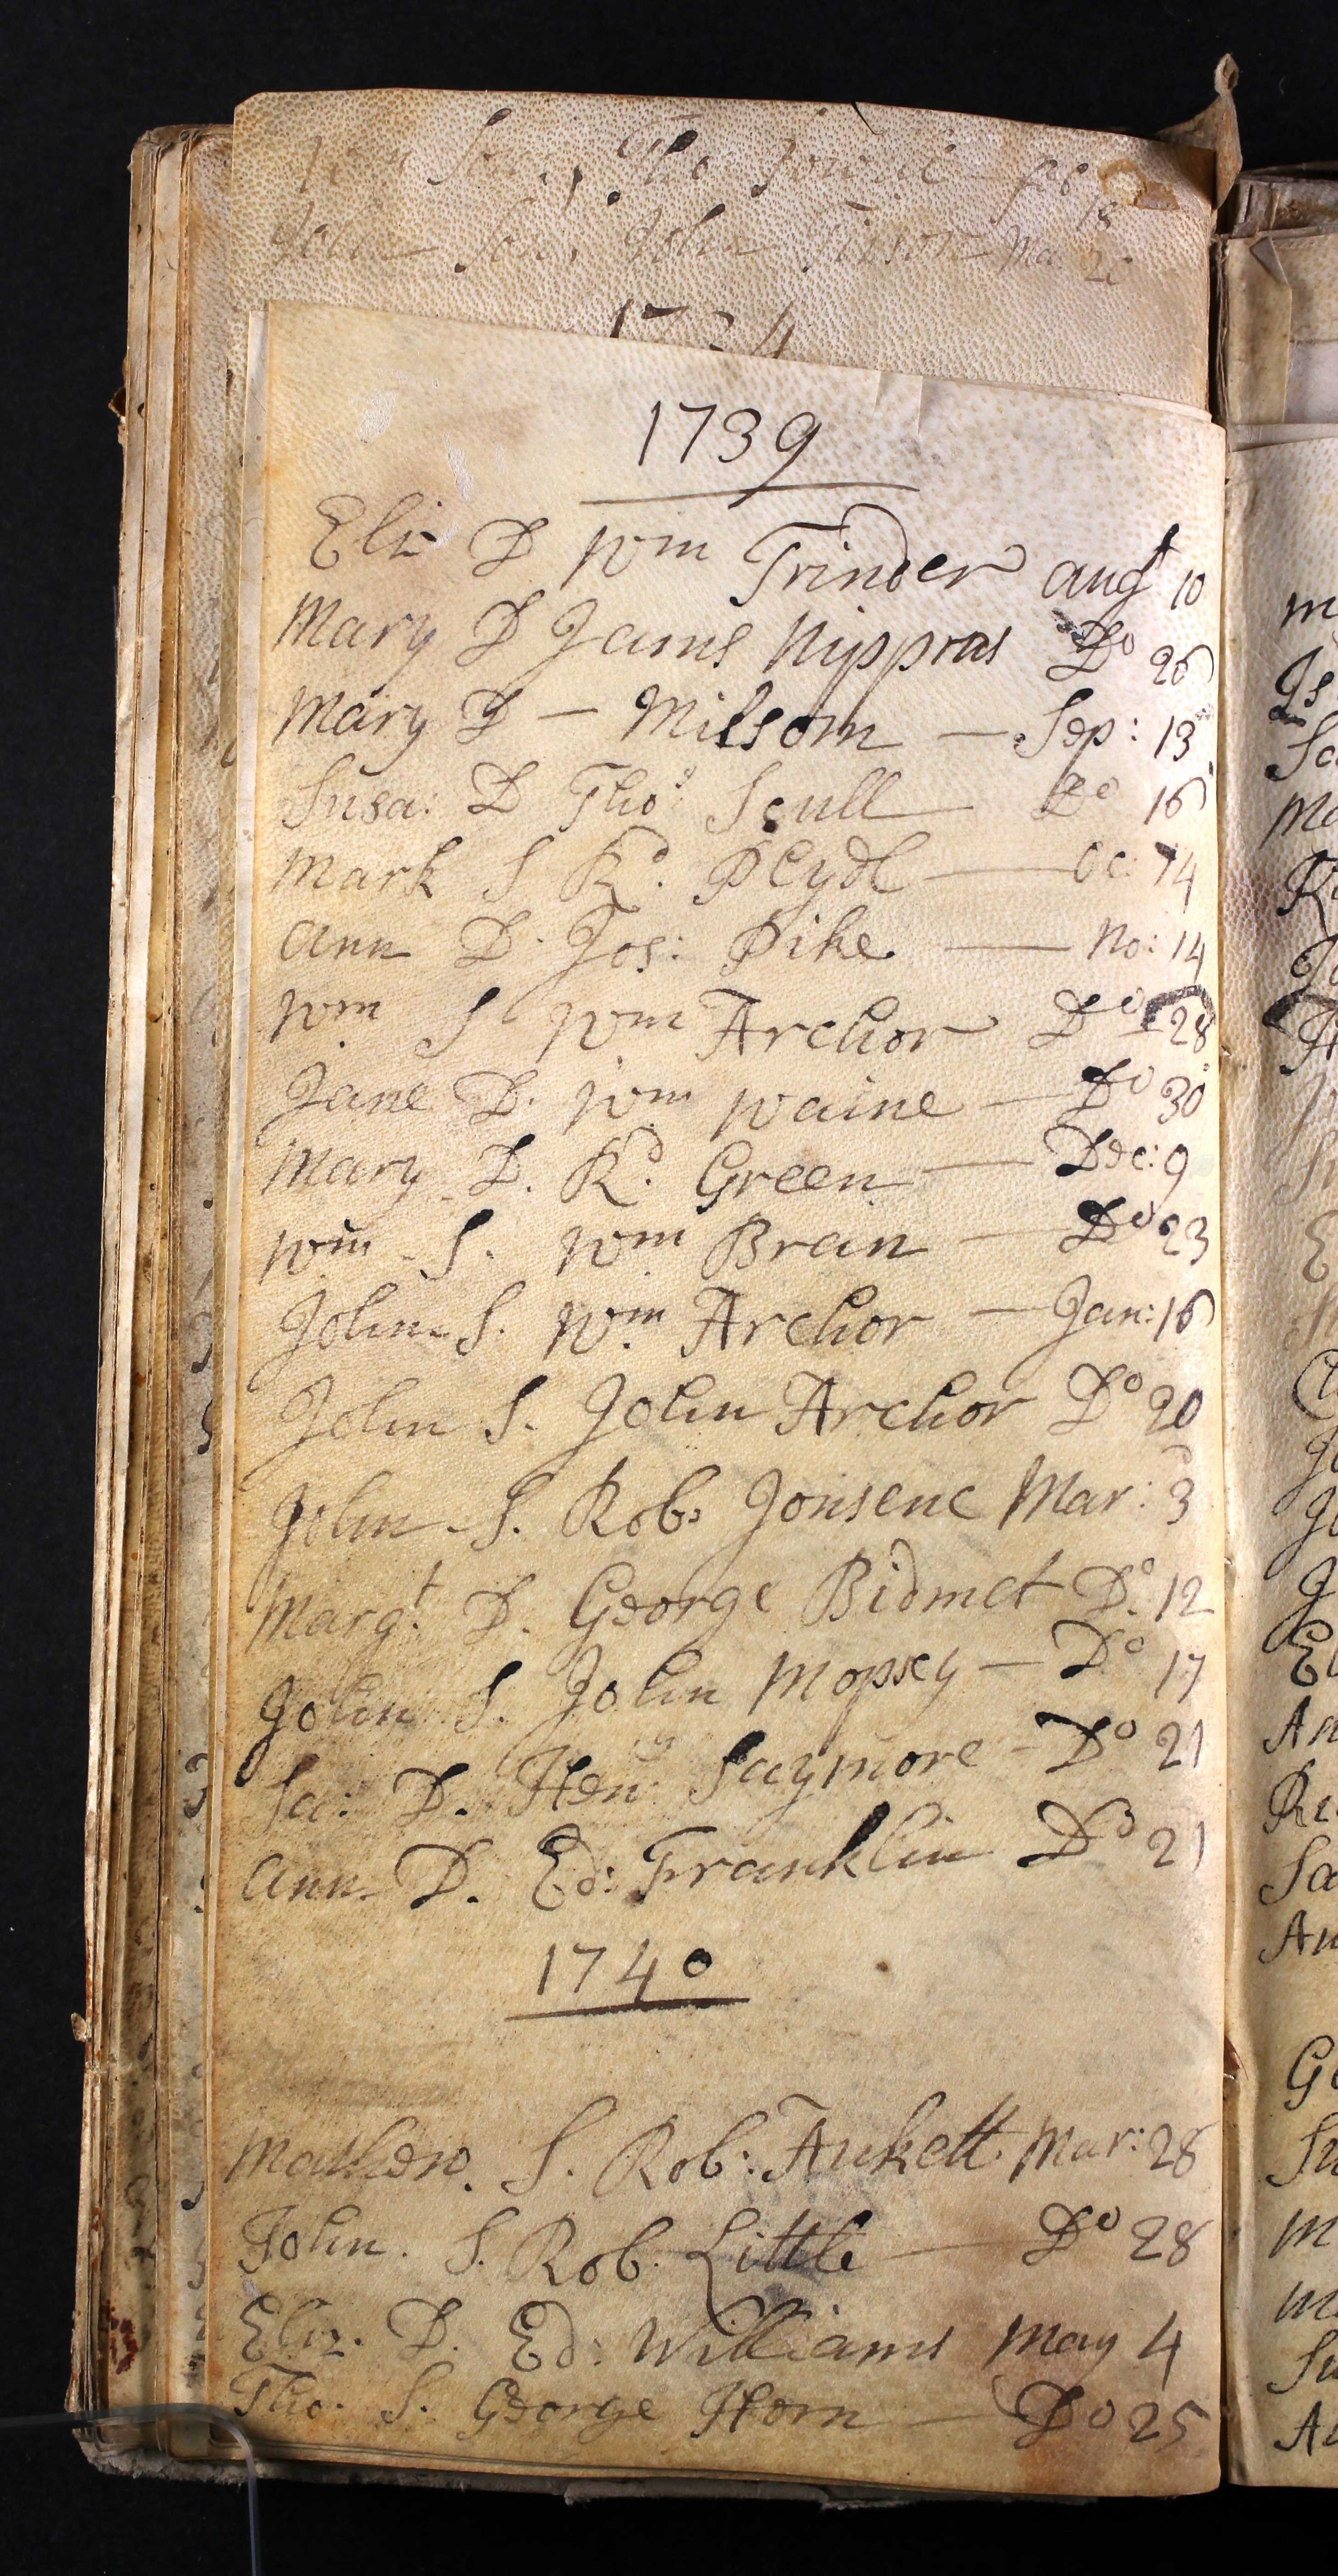 Son Tho: Fowlle feb 18
John Son John Tinson Ma 20
1734
1739
Eliz D Wm Trinder aug 10
Mary D James Nippras Do 26
Mary D — Milsom — Sep: 13
Susa: D Thos Scull — Do 16
Mark S Rd. Pleydl — Oc: 14
ann D. Jos: Pike — No: 14
Wm S Wm Archor Do 28
Jane D. Wm Waine — Do 30
Mary D. Rd. Green — Dec: 9
Wm S. Wm Brain — Do 23
John S. Wm Archor — Jan: 16
John S. John Archor Do 20
John S. Rob: Jonsene Mar: 3
Margt. D. George Bidmet Do. 12
John S. John Mopsey — Do 17
Sa: D. Hen: Saymore — Do 21
ann D. Ed: Franklin Do 21
1740
Mathew. S. Rob: Ankett Mar: 28
John. S. Rob. Little — Do 28
Eliz. D. Ed: Williams May 4
Tho. S. George Horn — Do 25